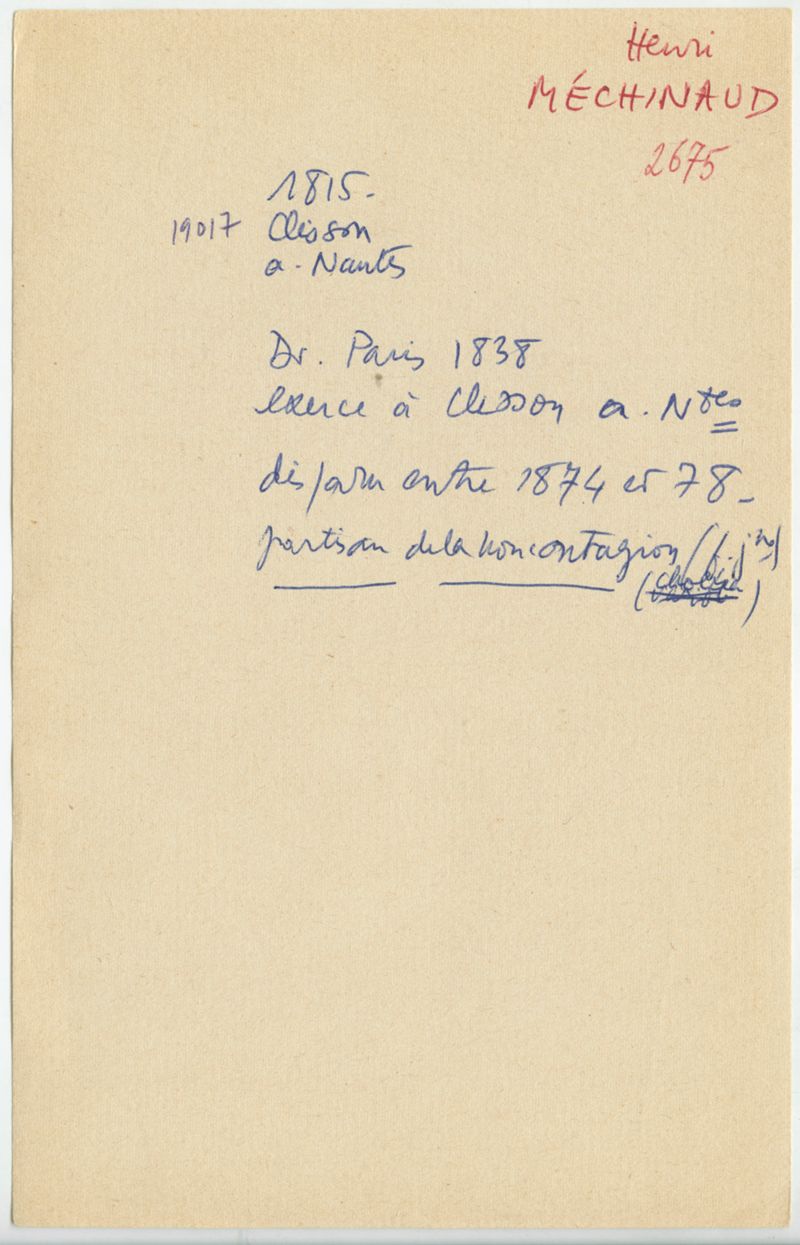 Henri
MÉCHINAUD
2675
1815.
19017 Clisson
a. Nantes
Dr. Paris 1838
exerce à Clisson a. Ntes
disparu entre 1874 et 78_
partisan de la non contagion
(choléra)